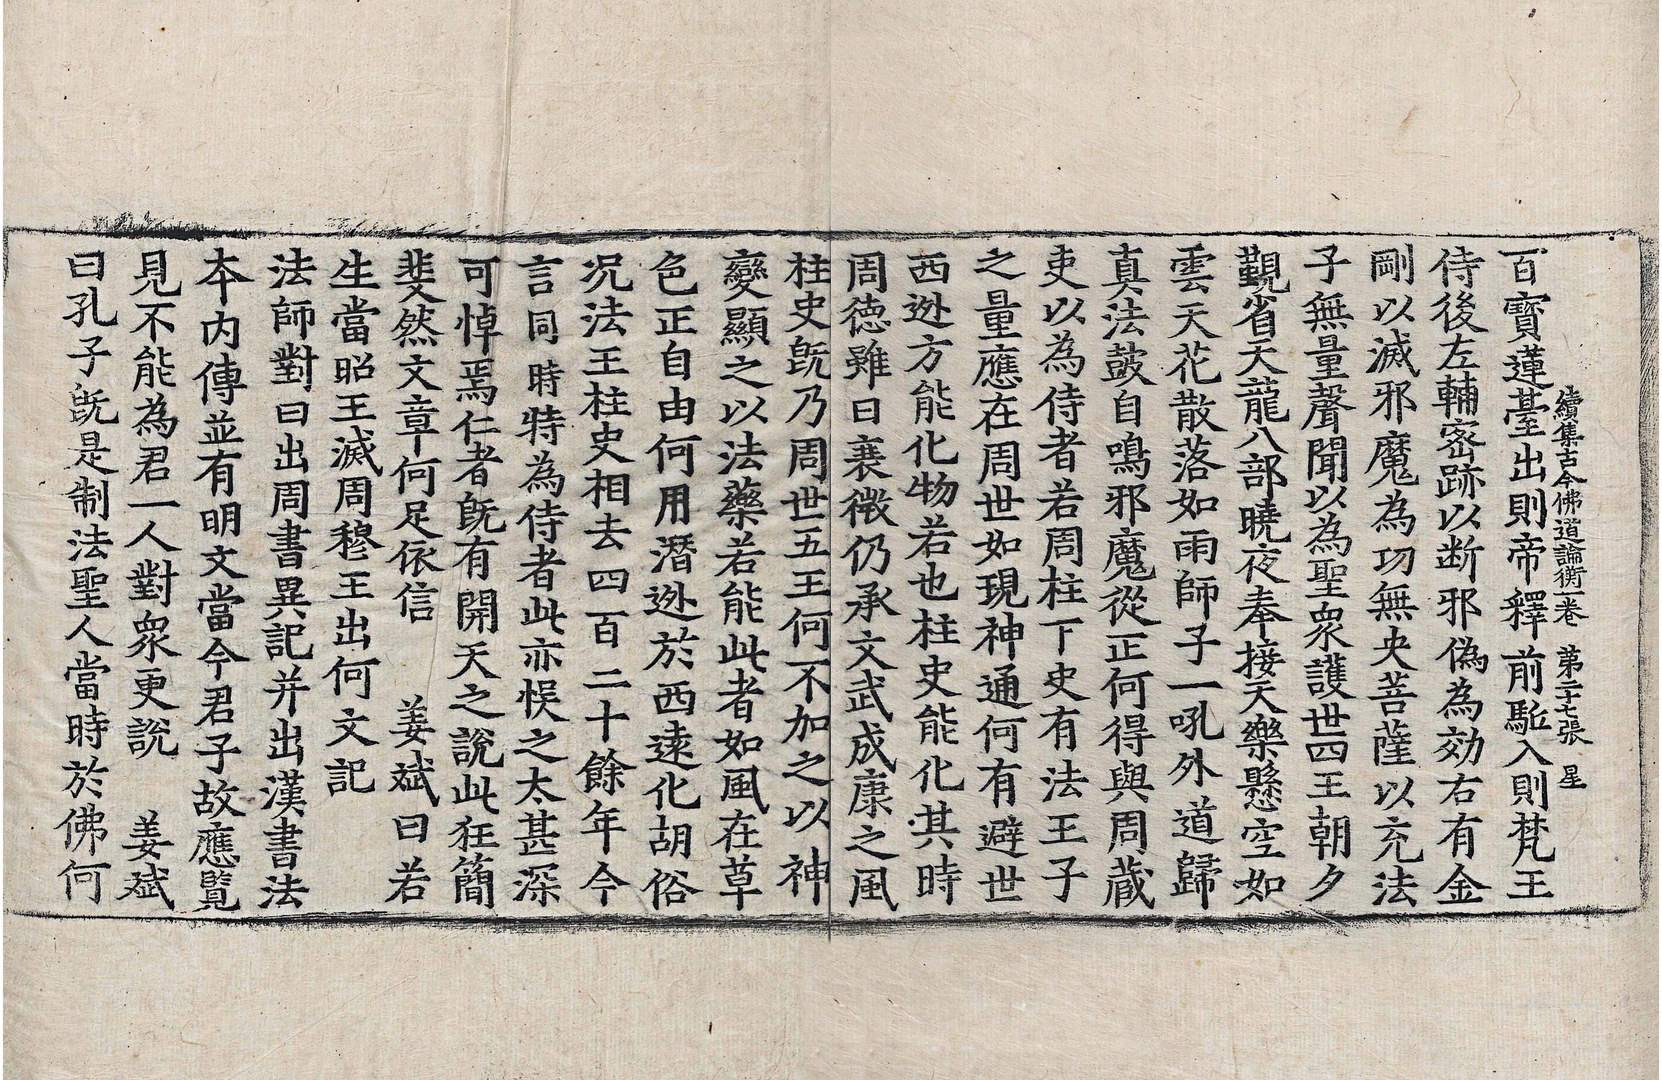 續集古今佛道論衡一卷 第二十七張 星
百寶蓮臺出則帝釋前駈入則梵王
侍後左輔密跡以断邪偽為効右有金
剛以滅邪魔為功無央菩薩以充法
子無量聲聞以為聖衆護世四王朝夕
覲省天龍八部曉夜奉接天樂懸空如
雲天花散落如雨師子一吼外道歸
真法鼓自鳴邪魔從正何得與周藏
吏以為侍者若周柱下史有法王子
之量應在周世如現神通何有避世
西迯方能化物若也柱史能化其時
周德雖曰衰微仍承文武成康之風
柱史旣乃周世五王何不加之以神
變顯之以法藥若能此者如風在草
色正自由何用潛迯於西遠化胡俗
况法王柱史相去四百二十餘年今
言同時特為侍者此亦悮之太甚深
可悼焉仁者旣有開天之說此狂簡
斐然文章何足依信 姜斌曰若
生當昭王滅周穆王出何文記
法師對曰出周書異記并出漢書法
本内傳並有明文當今君子故應覧
見不能為君一人對衆更說 姜斌
曰孔子旣是制法聖人當時於佛何